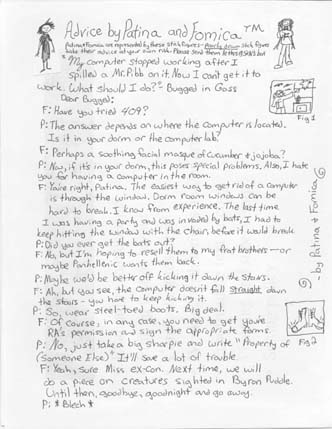 Advice by Patina and Fomica™
Patina & Fomica are represented by these stick figures - Poorly drawn stick figures
take their advice at your own risk. Please send them letters
"My computer stopped working after I
spilled a Mr. Pibb on it. Now I can't get it to
work. What should I do?" - Bugged in Goss
Dear Bugged:
F: Have you tried 409?
P: The answer depends on where the computer is located.
Is it in your dorm or the computer lab?
F: Perhaps a soothing facial masque of cucumber & jojoba?
P: Now, if it's in your dorm, this poses special problems. Also, I hate
you for having a computer in the room.
F: You're right, Patina. The easiest way to get rid of a computer
is through the window. Dorm room windows can
be hard to break. I know from experience. The last time
I was having a party and was invaded by bats, I had to
keep hitting the window with the chair, before it would break.
P: Did you ever get the bats out?
F: No, but I'm hoping to resell them to my frat brothers - or
maybe Panhellenic wants them back.
P: Maybe we'd be better off kicking it down the stairs.
F: Ah, but you see, the computer doesn't fall straight down
the stairs - you have to keep kicking it.
P: So, wear steel-toed boots. Big deal.
F: Of course, in any case, you need to get your
RA's permission and sign the appropriate forms.
P: No, just take a big sharpie and write "Property of
(someone Else)" It'll save a lot of trouble.
F: Yeah, sure Miss ex-con. Next time, we will
do a piece on creatures sighted in Byron Puddle.
Until then, goodbye, goodnight and go away.
P: *Blech*
Fig 1
- by Patina & Fomica
Fig 2